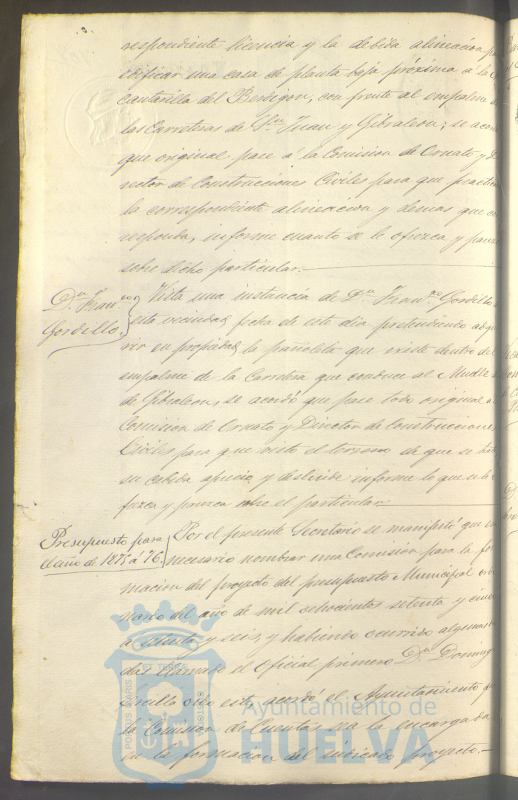 respondiente licencia y la debida alineacion p
edificar una casa de planta baja próxima á la
cantarilla del Berdigon, con frente al empalme
las Carreteras de Sn Juan y Gibraleon; se acor
que original pase á la Comision de Ornato y D
rector de Construcciones Civiles para que practi
la correspondiente alineacion y demas que co
responda, informe cuanto se le ofrezca y parez
sobre dicho particular.
Dn Franco
Gordillo
Vista una instancia de Dn Franco Gordillo
esta vecindad, fecha de este dia pretendiendo adqu
rir en propiedad la pañoleta que existe dentro del
empalme de la Carretera que conduce al Muelle
de Gibraleon, se acordó que pase toda original
Comision de Ornato y Director de Construccione
Civiles para que visto el terreno de que se tra
su cabida aprecio y deslinde informe lo que se le
frezca y parezca sobre el particular.
Presupuesto para
el año de 1875 á 76.
Por el presente Secretario se manifestó que
necesario nombrar una Comision para la for
macion del proyecto del presupuesto Municipal ordi
nario del año de mil ochocientos setenta y cinco
a setenta y seis, y habiendo ocurrido algunas
das llamado el Oficial primero Dn Doming
oido este acordó el Ayuntamiento q
la Comision de Cuentas sea la encargada
en la formacion del indicado proyecto.
PORTUS MARIS ET TERRÆ CUSTODIA
Ayuntamiento de
HUELVA